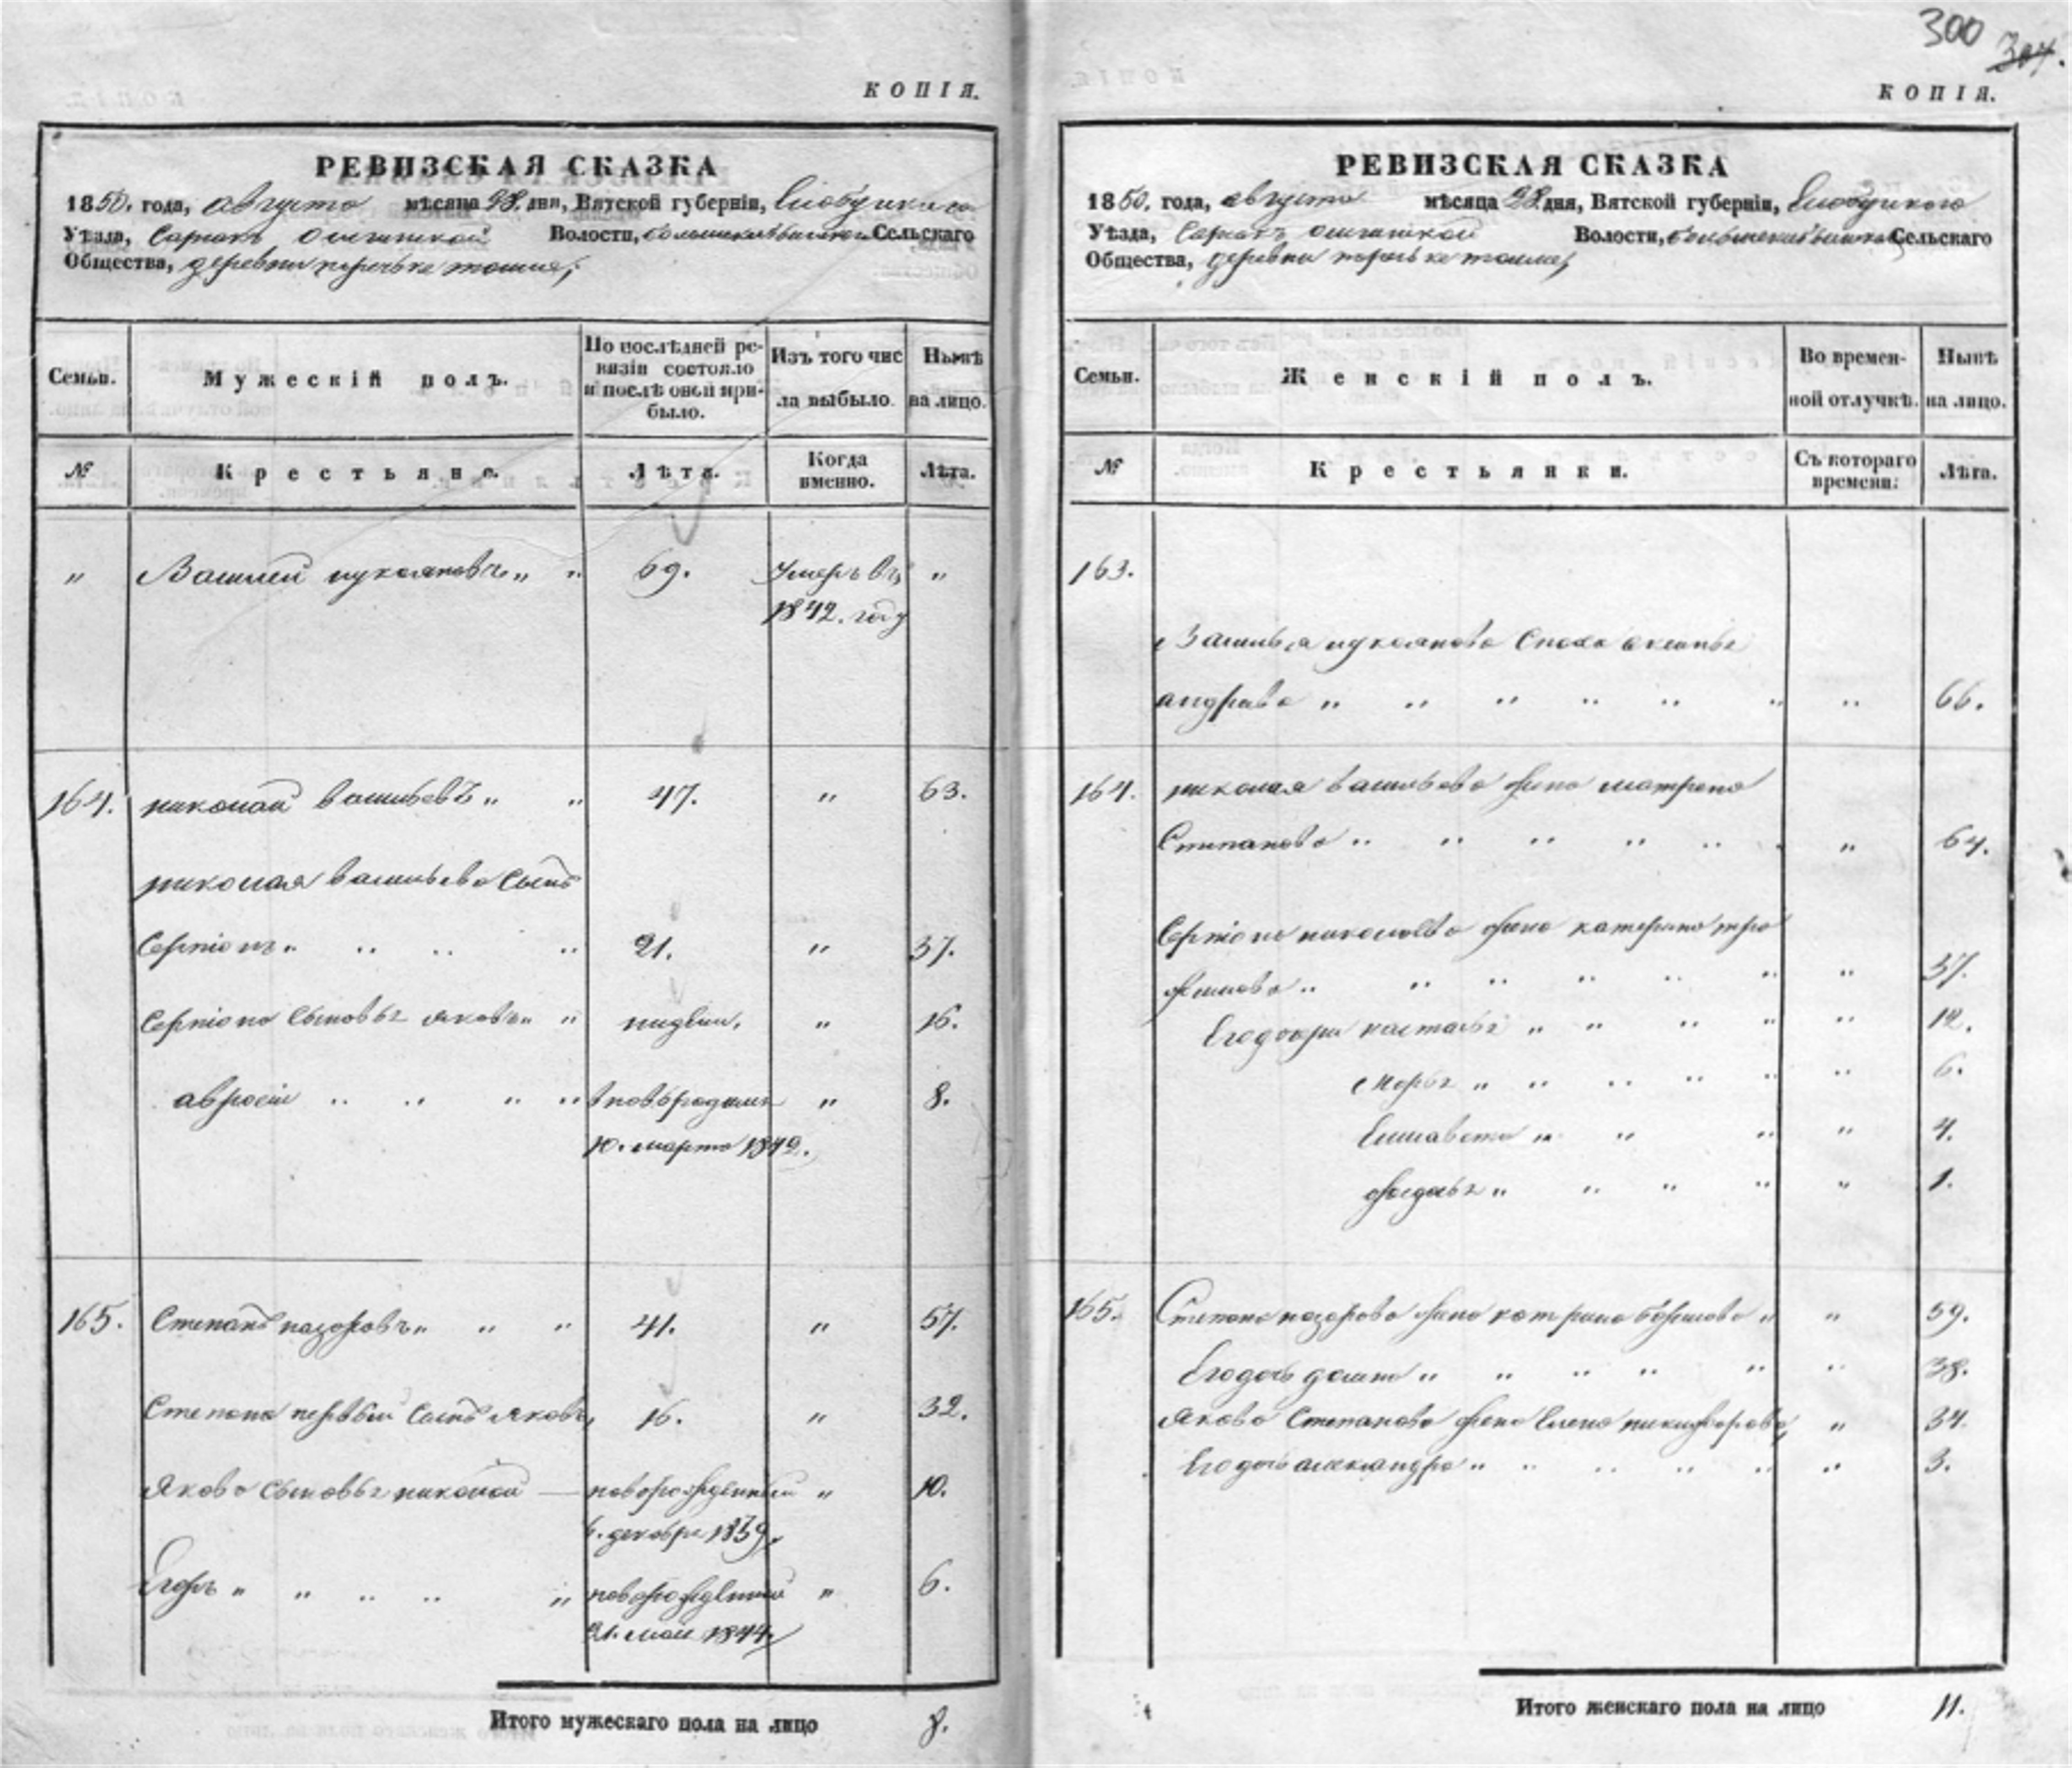 КОПІЯ.
РЕВИЗСКАЯ СКАЗКА
1850. года, августа мѣсяца 28. дня, Вятской губерніи, Слободскаго
Уѣзда, Волости, Сельскаго
Общества, деревни
Семьи. Мужескій полъ. По послѣдней ре- Изъ того чис Нынѣ
визіи состояло
и послѣ оной при- ла выбыло. на лицо.
было.
№ Крестьяне. Лѣта. Когда Лѣта.
именно.
„ Василей „ „ 69. Умеръ въ „
1842. году
164. николай васильевъ „ „ 47. „ 63.
николая васильева Сынъ
Серпіонъ „ „ „ „ 21. „ 37.
Серпіона Сыновья яковъ „ „ „ 16.
„ „ „ „ „ 8.
10. марта 1842.
165. Степанъ назаровъ „ „ „ 41. „ 57.
Степана первый Сынъ яковъ, 16. „ 32.
Якова Сыновья николай — новорожденный „ 10.
6. декабря 1839.
Егоръ „ „ „ „ „ новорожденный „ 6.
21. мая 1844.
Итого мужескаго пола на лицо 8.
300
304.
КОПІЯ.
РЕВИЗСКАЯ СКАЗКА
1850. года, августа мѣсяца 28. дня, Вятской губерніи, Слободскаго
Уѣзда, Волости, Сельскаго
Общества, деревни
Семьи. Женскій полъ. Во времен- Нынѣ
ной отлучкѣ. на лицо.
№ Крестьянки. Съ котораго Лѣта.
времени:
163.
Василья
„ „ „ „ „ „ „ 66.
164. николая васильева жена матрена
Степанова „ „ „ „ „ „ „ 64.
Серпіона николаева жена катерина тро
фимова „ „ „ „ „ „ „ 37.
Егодочри настасья „ „ „ „ „ 12.
марья „ „ „ „ „ „ 6.
Елисавета „ „ „ „ 4.
федосья „ „ „ „ „ 1.
165. Степана назарова жена катерина ефимова „ „ 59.
Егодочь „ „ „ „ „ „ 38.
Якова Степанова жена Елена никифорова, „ 34.
Егодочь александра „ „ „ „ „ „ 3.
Итого женскаго пола на лицо 11.